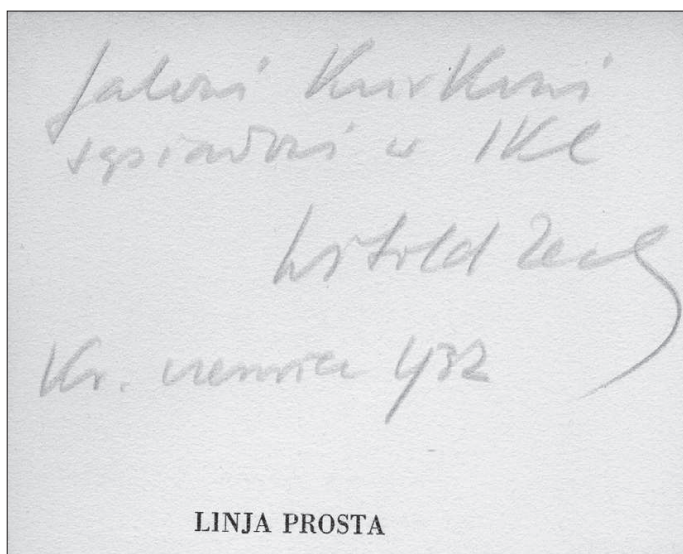 Jalowi Kurkowi
sąsiadowi w IKC
Witold
Kr. czerwiec 932
LINJA PROSTA